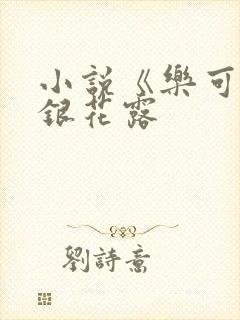 小說《樂可
銀花露
劉詩意